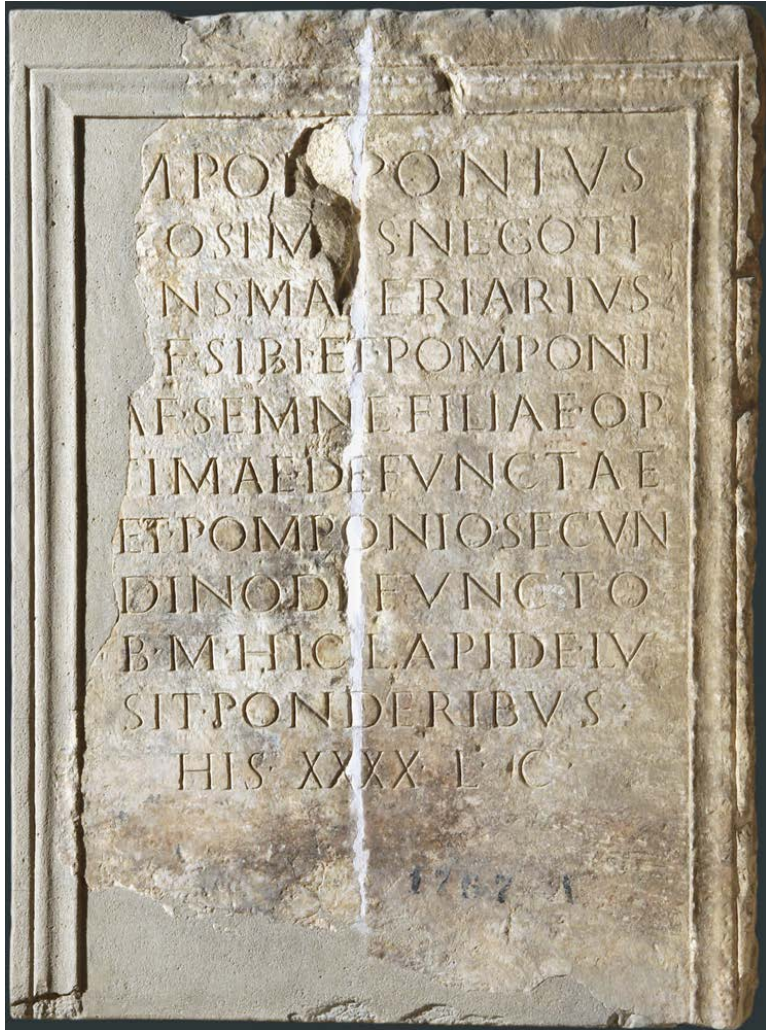 M·PO PONIVS
OSIM S·NEGOTI
NS·MA ERIARIVS
F·SIBI·ET·POMPONI
AE·SEMNE·FILIAE·OP
TIMAE·DEFVNCTAE
ET·POMPONIO·SECVN
DINO·DEFVNCTO
B·M·HIC·LAPIDE·LV
SIT·PONDERIBVS·
HIS·XXXX·L·C·